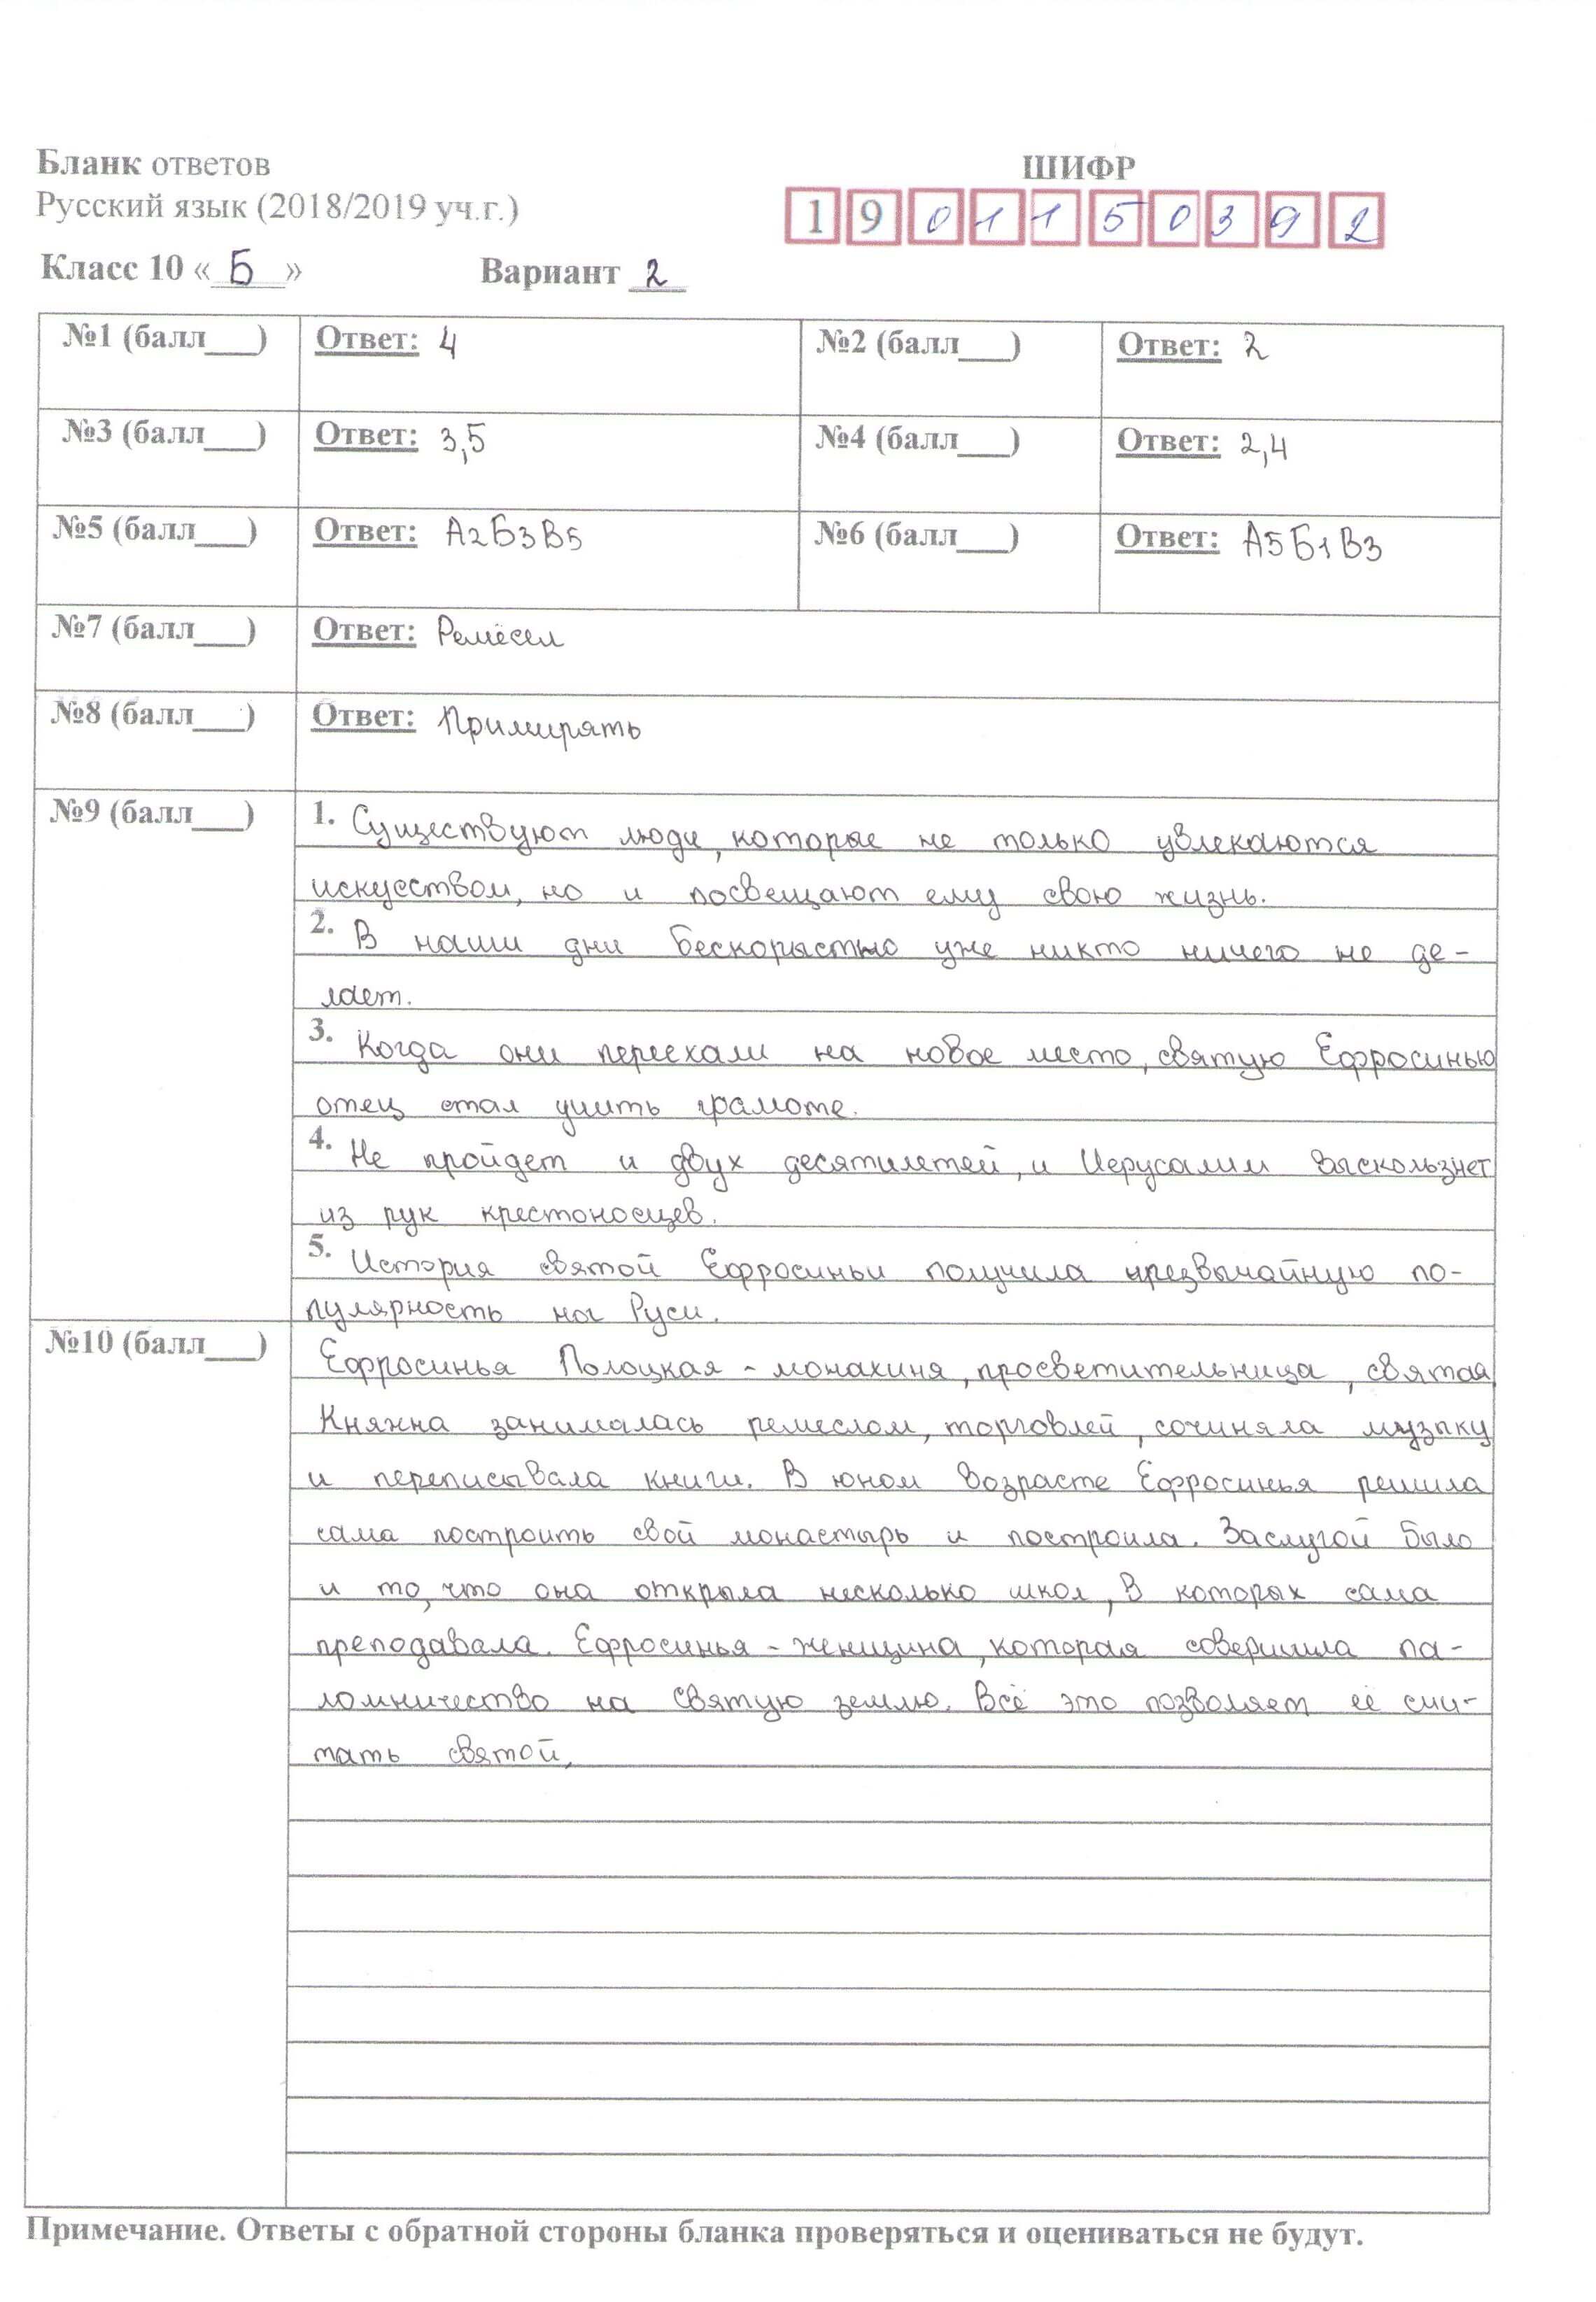 Бланк ответов
ШИФР
Русский язык (2018/2019 уч.г.)
1 9 0 1 1 5 0 3 9 2
Класс 10 «Б» Вариант 2
№1 (балл___) Ответ: 4 №2 (балл___) Ответ: 2
№3 (балл___) Ответ: 3,5 №4 (балл___) Ответ: 2,4
№5 (балл___) Ответ: А2Б3В5 №6 (балл___) Ответ: А5Б1В3
№7 (балл___) Ответ: Ремёсел
№8 (балл___) Ответ: Примирять
№9 (балл___) 1. Существуют люди, которые не только увлекаются
искусством, но и посвещают ему свою жизнь.
2. В наши дни бескорыстно уже никто ничего не де-
лает.
3. Когда они переехали на новое место, святую Ефросинью
отец стал учить грамоте.
4. Не пройдет и двух десятилетей, и Иерусалим выскользнет
из рук крестоносцев.
5. История святой Ефросиньи получила чрезвычайную по-
пулярность на Руси.
№10 (балл___) Ефросинья Полоцкая - монахиня, просветительница, святая.
Княжна занималась ремеслом, торговлей, сочиняла музыку
и переписывала книги. В юном возрасте Ефросинья решила
сама построить свой монастырь и построила. Заслугой было
и то, что она открыла несколько школ, в которых сама
преподавала. Ефросинья - женщина, которая совершила па-
ломничество на святую землю. Всё это позволяет её счи-
тать святой.
Примечание. Ответы с обратной стороны бланка проверяться и оцениваться не будут.